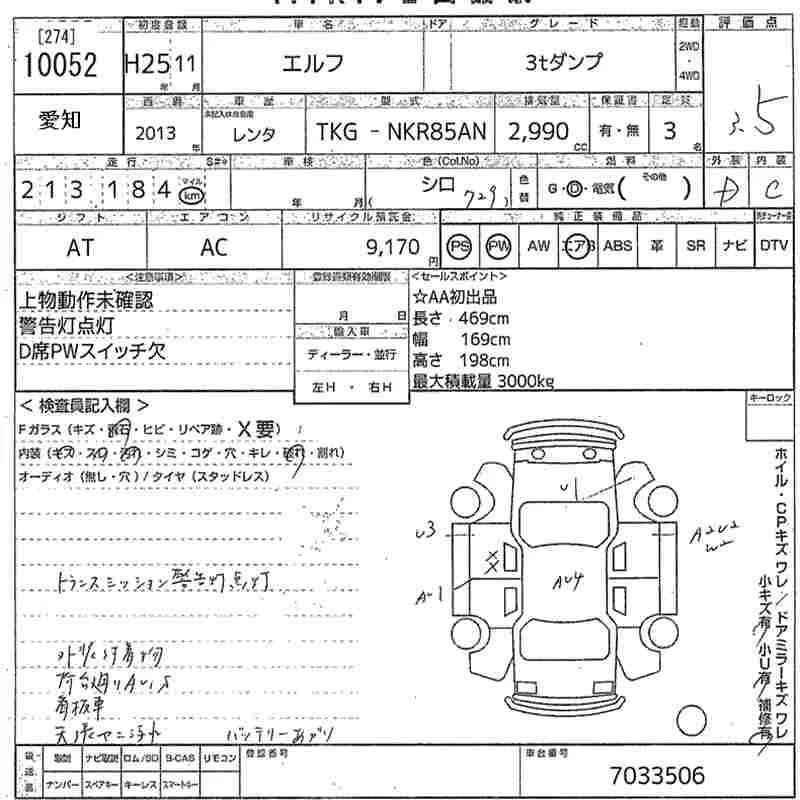 [274]
10052
初度登録
車名
ドア
グレード
駆動
評価点
H25 11
年 月
エルフ
3tダンプ
2WD
・
4WD
3.5
愛知
西暦
車歴
型式
排気量
保証書
定員
2013
年
未記入は自家用
レンタ
TKG - NKR85AN
2,990
CC
有・無
3
名
走行
S#
車検
色(Col.No)
燃料
外装
内装
213184
マイル
km
年 月
シロ
( 729 )
色替
G・D・電気( その他 )
D
C
シフト
エアコン
リサイクル預託金
純正装備品
AT
AC
9,170
円
PS
PW
AW
エアB
ABS
革
SR
ナビ
DTV
<注意事項>
上物動作未確認
警告灯点灯
D席PWスイッチ欠
登録書類有効期限
月 日
輸入車
ディーラー・並行
左H ・ 右H
<セールスポイント>
☆AA初出品
長さ 469cm
幅 169cm
高さ 198cm
最大積載量 3000kg
キーロック
< 検査員記入欄 >
Fガラス(キズ・ ・ヒビ・リペア跡・X要)
内装(キズ・ ・ ・シミ・コゲ・穴・キレ・破れ・割れ)
オーディオ(無し・穴)/タイヤ(スタッドレス)
トランスミッション警告灯点灯
荷台廻りAUS
看板車
バッテリーあがり
U1
U3
XX
AU1
AU4
A2U2
W2
ホイル・CPキズ ワレ/ドアミラーキズ ワレ
小キズ有/小U有/補修有
後送品
取説
ナビ取説
ロム/SD
B-CAS
リモコン
ナンバー
スペアキー
キーレス
スマートキー
登録番号
車台番号
7033506